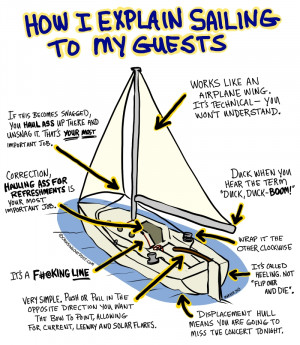 HOW I EXPLAIN SAILING
TO MY GUESTS
WORKS LIKE AN
AIRPLANE WING.
IT'S TECHNICAL – YOU
WON'T UNDERSTAND.
IF THIS BECOMES SNAGGED,
YOU HAUL ASS UP THERE AND
UNSNAG IT. THAT'S YOUR MOST
IMPORTANT JOB.
CORRECTION,
HAULING ASS FOR
REFRESHMENTS IS
YOUR MOST
IMPORTANT JOB.
DUCK WHEN YOU
HEAR THE TERM
"DUCK, DUCK-BOOM!"
WRAP IT THE
OTHER CLOCKWISE
IT'S A F#@KING LINE
IT'S CALLED
HEELING, NOT
"FLIP OVER
AND DIE".
VERY SIMPLE. PUSH OR PULL IN THE
OPPOSITE DIRECTION YOU WANT
THE BOW TO POINT, ALLOWING
FOR CURRENT, LEEWAY AND SOLAR FLARES.
DISPLACEMENT HULL
MEANS YOU ARE GOING TO
MISS THE CONCERT TONIGHT.